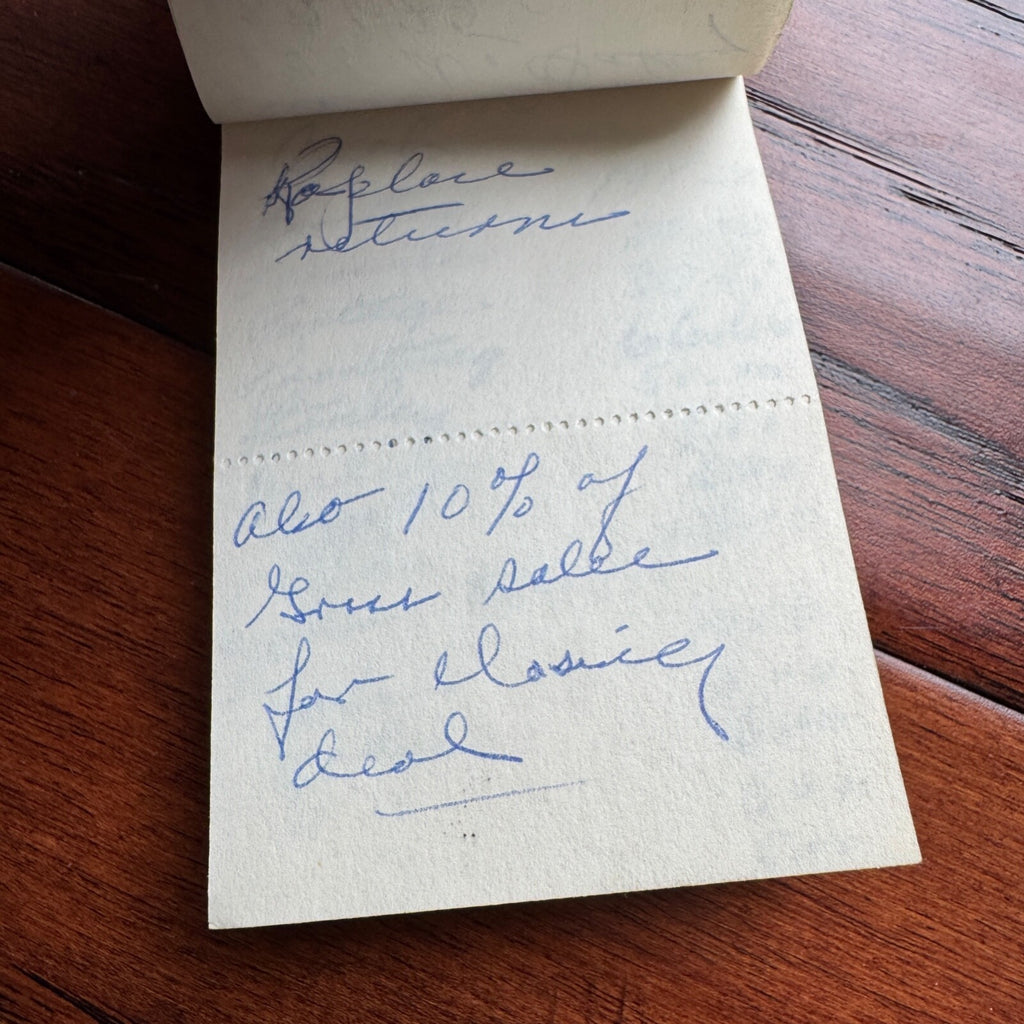 Replace
returns
also 10% of
Gross sales
for closing
deal